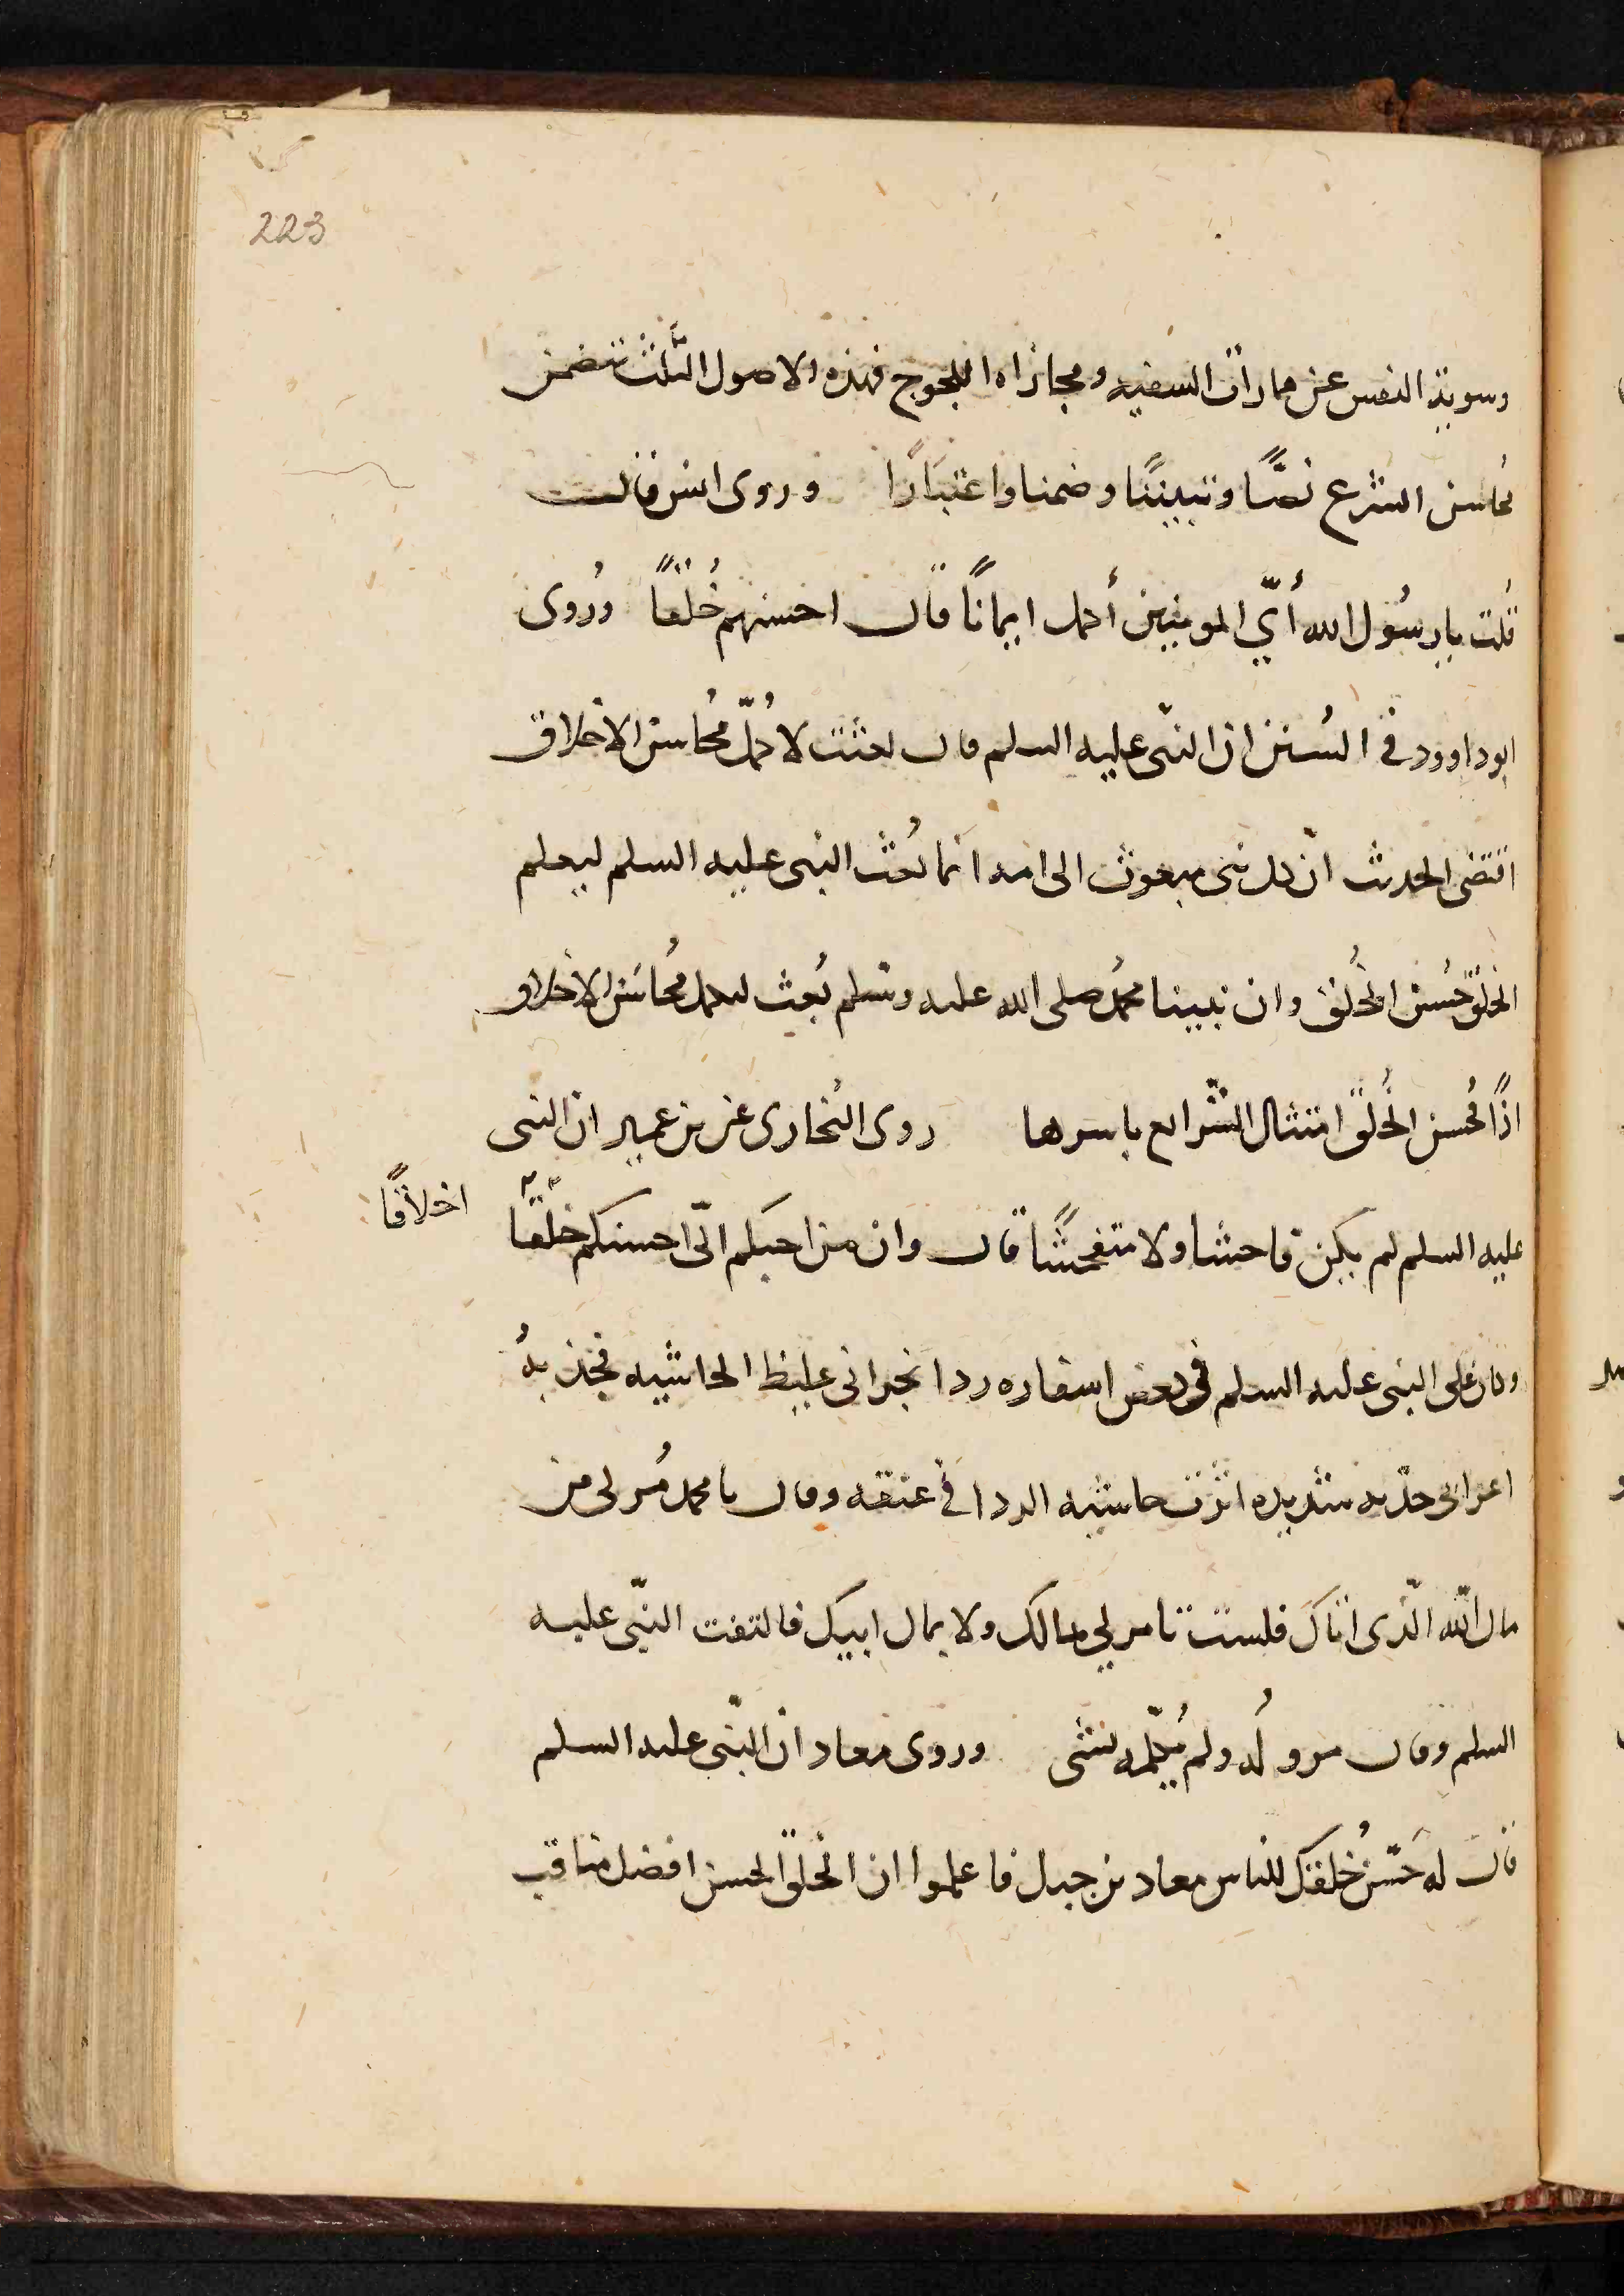 223
وسوية النفس عن مماراة السفيه ومجازاه اللجوج فهذه الاصول الثلث تتضمن
محاسن الشرع نصًّا وتبيينًا وضمنا واعتبارًا وروى انس قال
قلت يا رسُول الله أيّ المومنين أكمل ايمانًا قال احسنهم خُلقًا ورُوى
ابو داوود في السُنن ان النبّى عليه السلم قال بعثت لاكُمّل مُحاسن الاخلاق
اقتضى الحديث انّ كل نبى مبعوث الى امه انما بُعث النبى عليه السلم ليعلم
الخلق حُسن الخُلق وان نبينا محمُد صلى الله عليه وسلم بُعث ليكمل مُحاسَن الاخلاق
اذًا فحُسن الخُلق امتثال الشّرايع باسرها روى البُخارى عن بن عمير ان النبى
عليه السلم لم يكن فاحشا ولا متفحشًا قال وان من احبكم الىّ احسنكم خلْقًا
اخلاقًا
وكان على النبى عليه السلم فى بعض اسفاره ردا نجرانى غليظ الحاشيه فجذبهُ
اعرابى جذبه شديده اثرت حاشيه الردا فى عنقه وقال يا محمد مُر لى من
مال اللّه الّذى اتاكَ فلست تامر لي بمالك ولا بمال ابيك فالتفت النبّى عليه
السلم وقال مروا لُه ولم يُكلّمه بشى وروى معاد ان النبّى عليه السلم
قال له حَسّن خُلقك للناس معاد بن جبل فاعلموا ان الخلق الحسن افضل مناقب